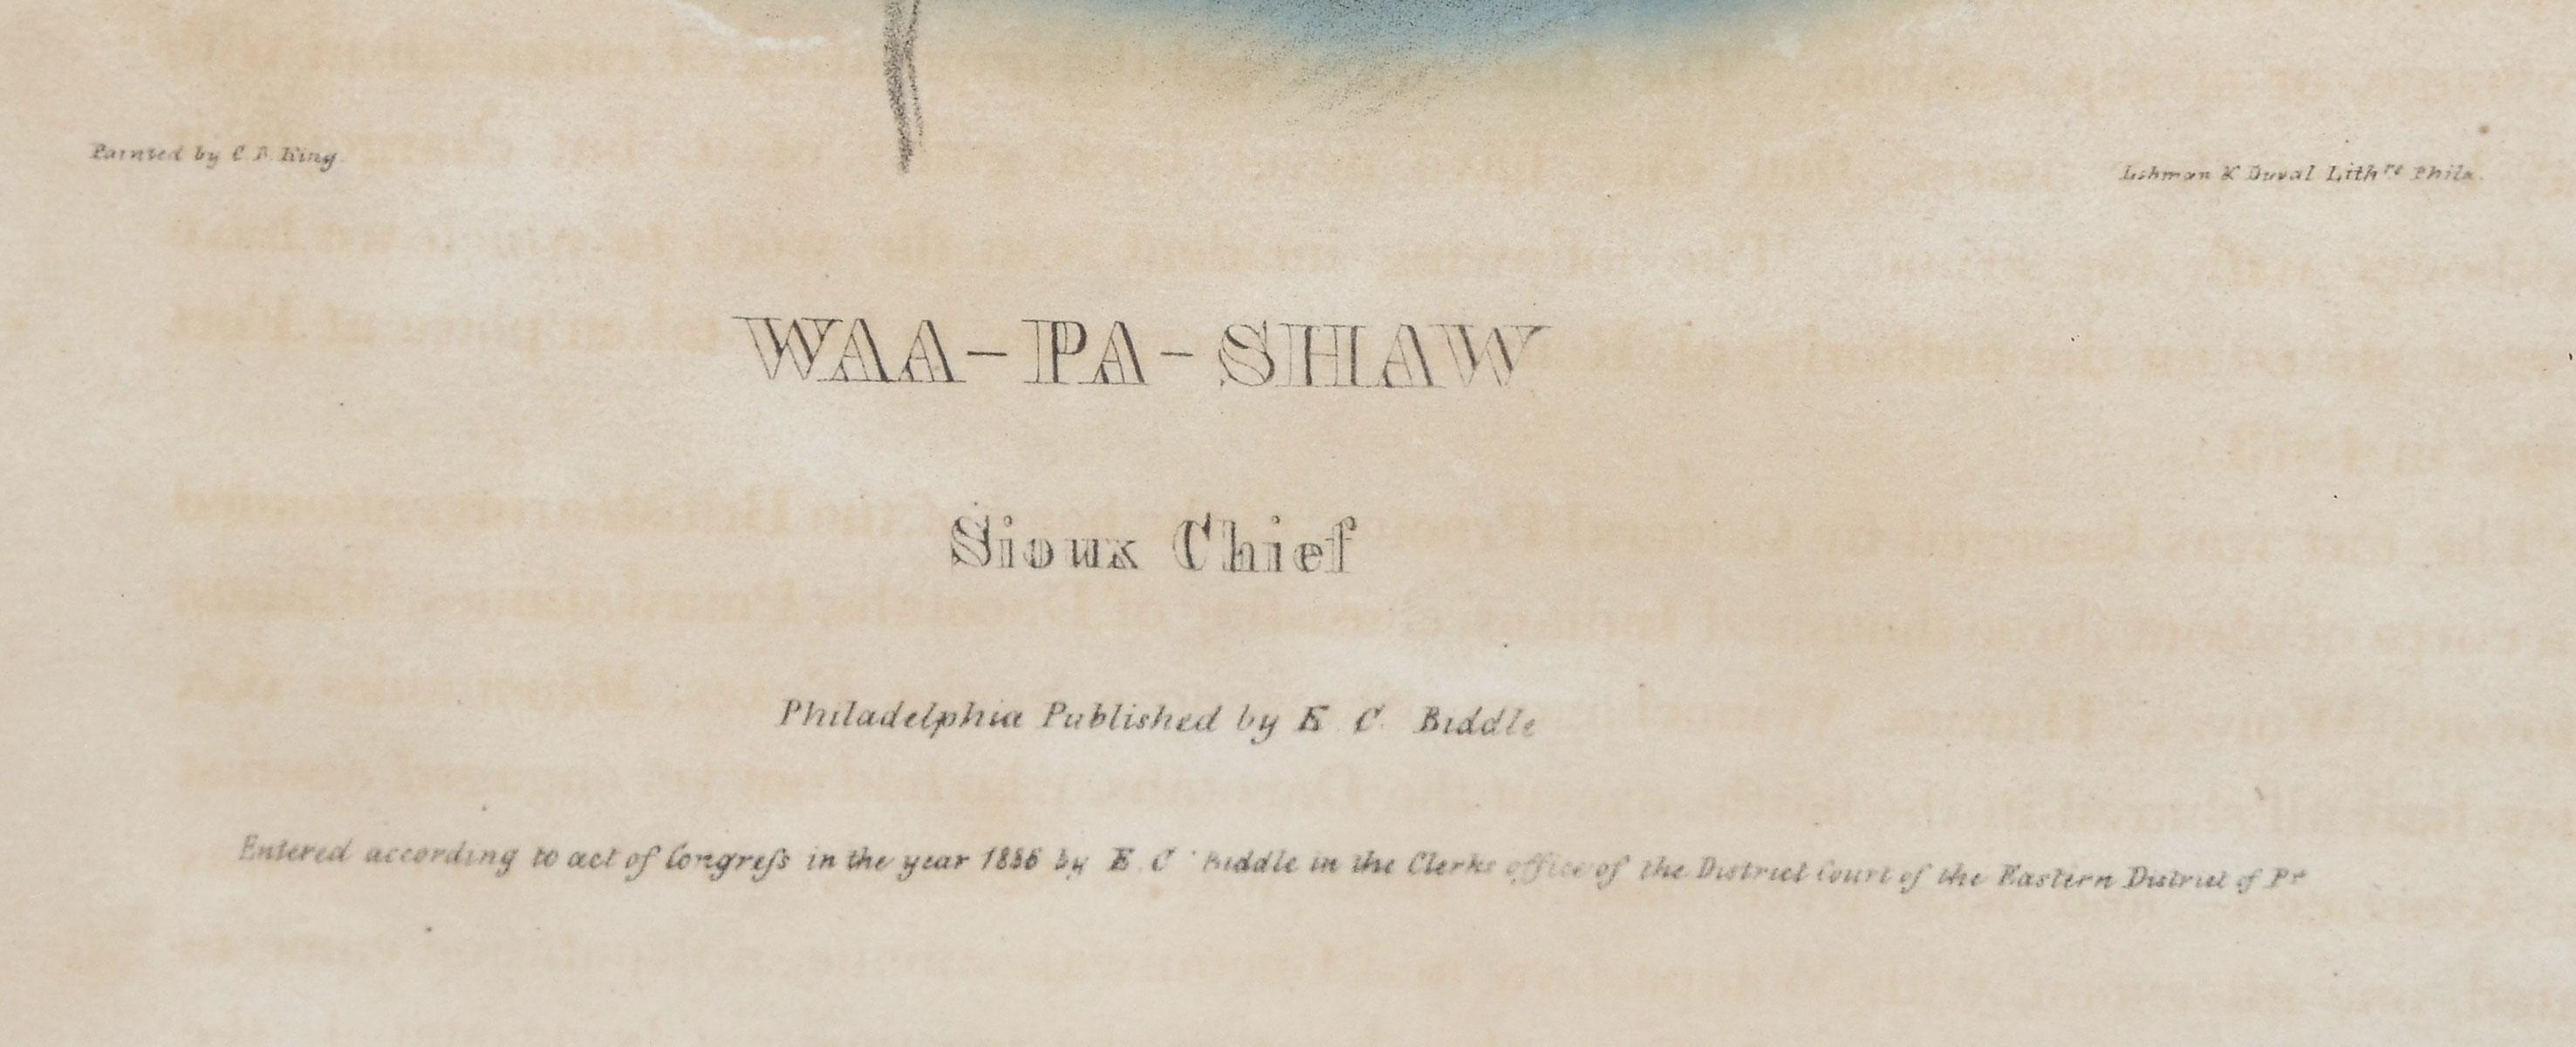 Painted by C. B. King.
Lehman & Duval Lithrs Phila.
WAA-PA-SHAW
Sioux Chief
Philadelphia Published by E. C. Biddle
Entered according to act of Congreſs in the year 1836 by E. C. Biddle in the Clerks office of the District Court of the Eastern District of Pa